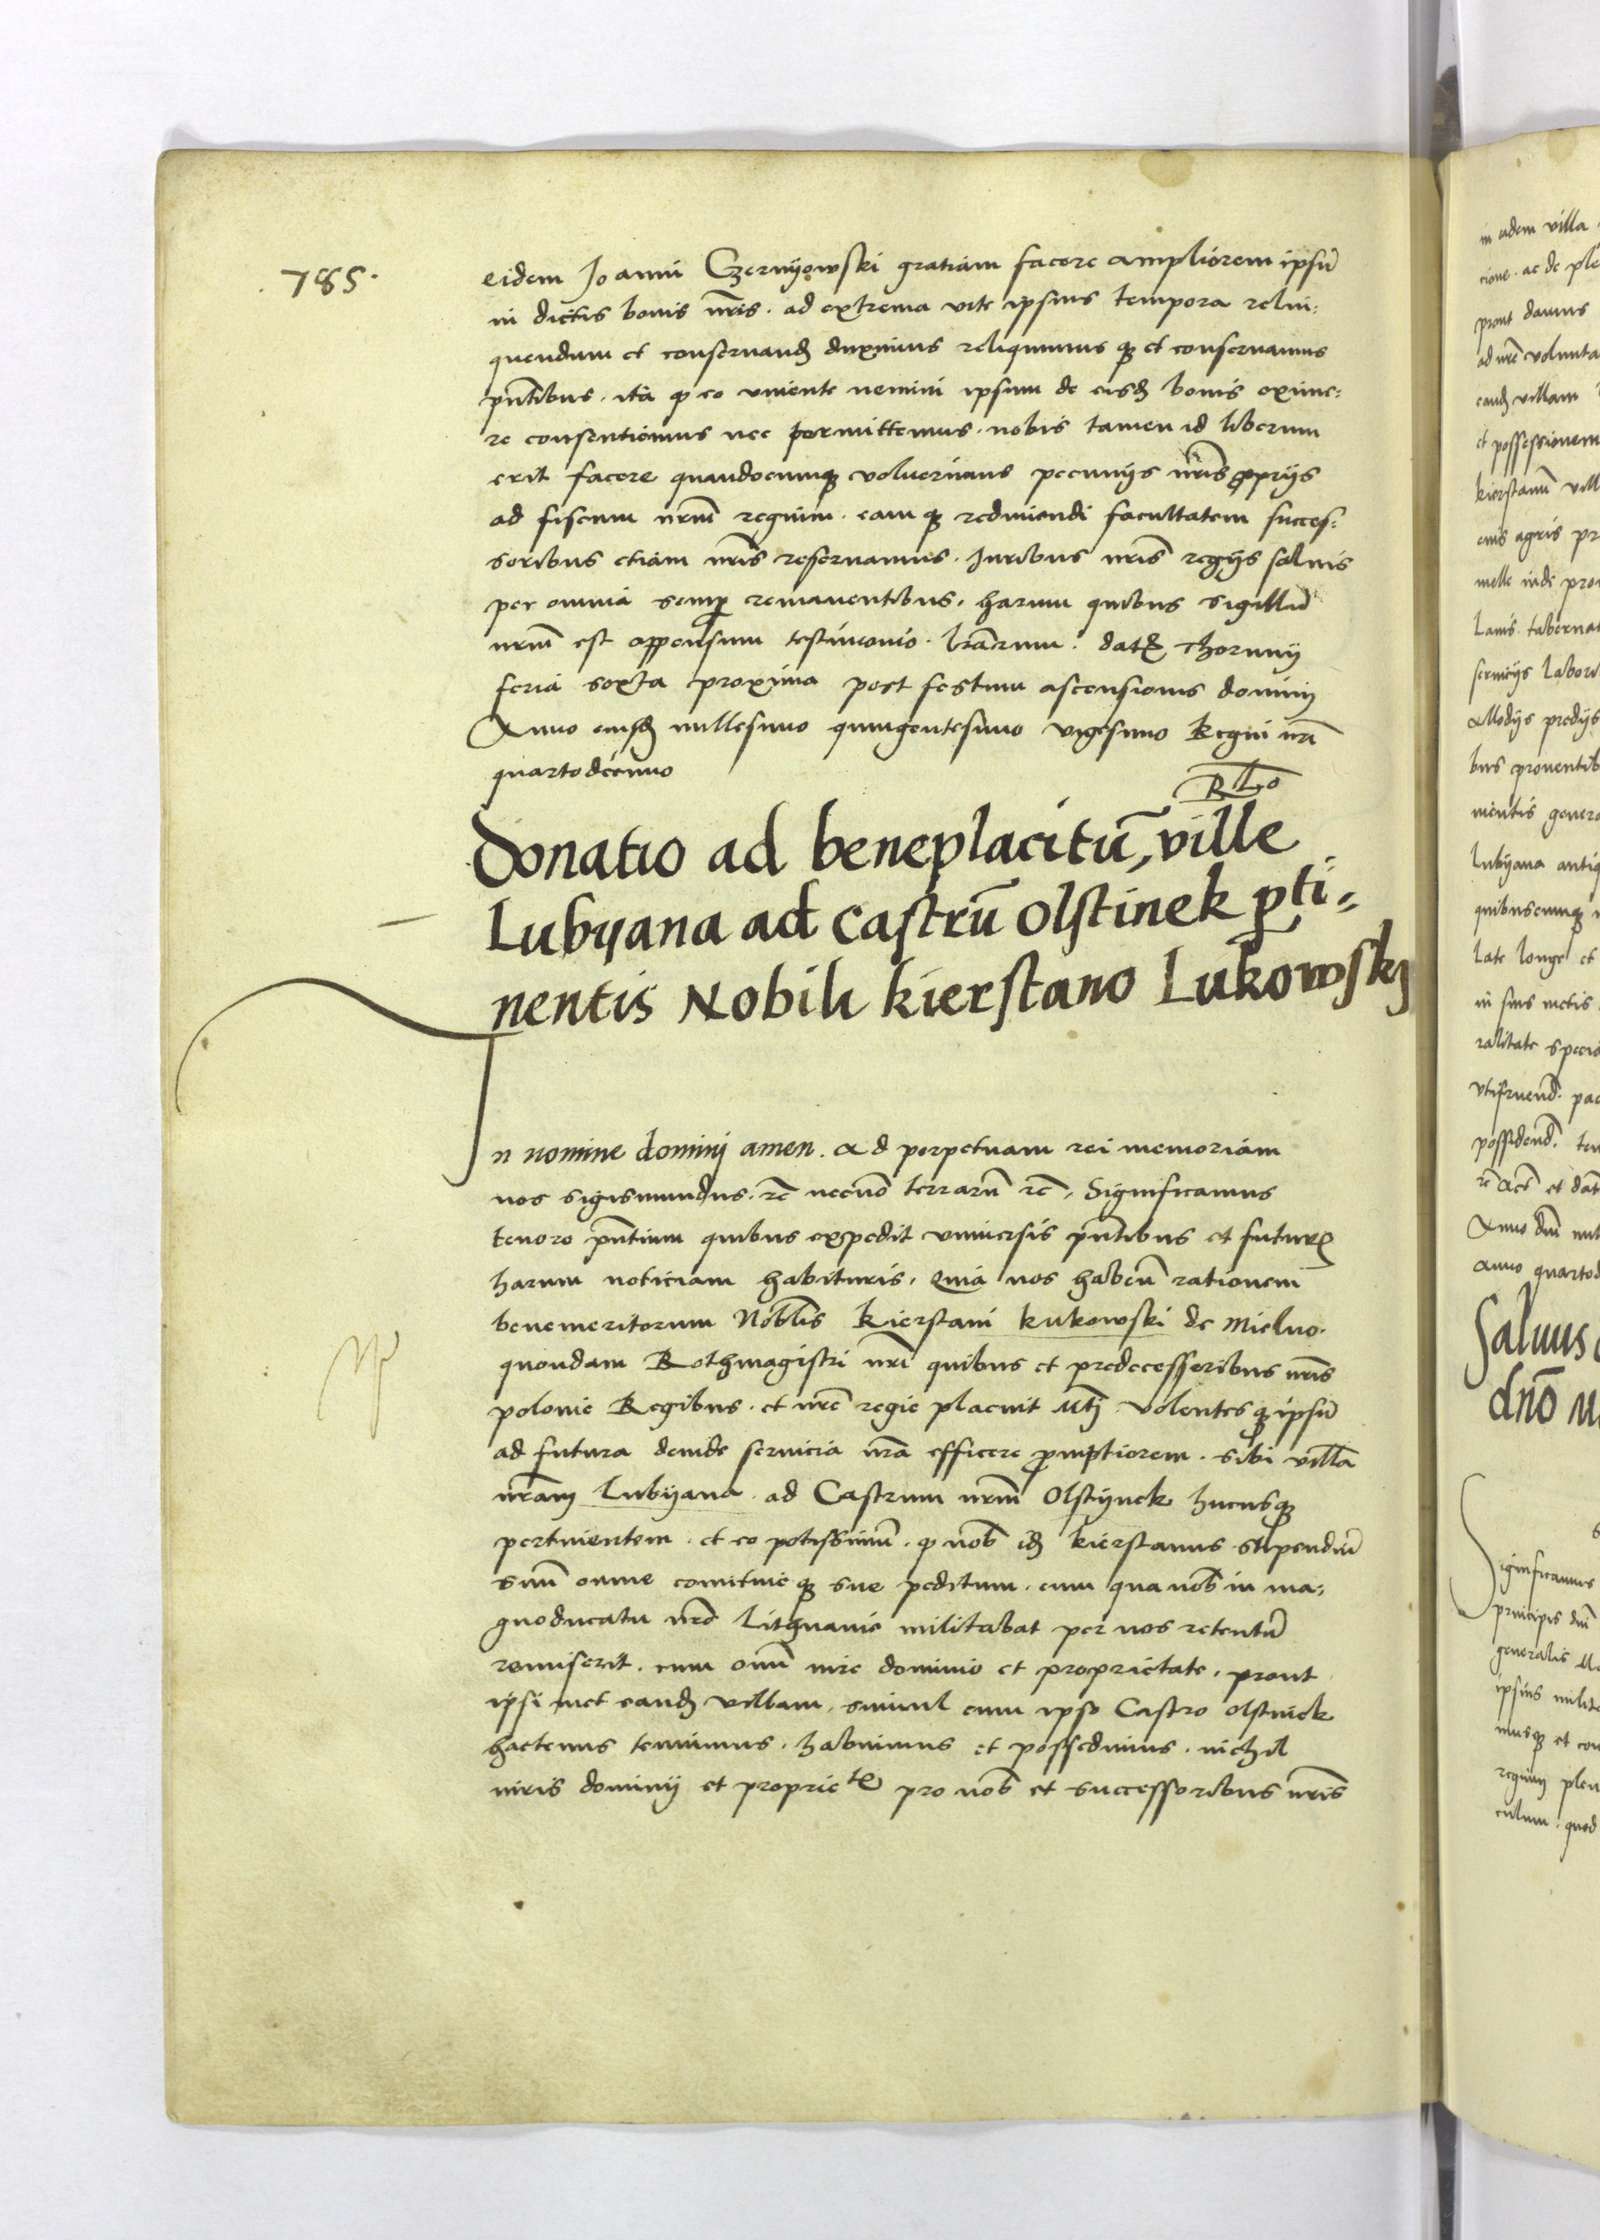 785.
eidem Joanni Czernyowski gratiam facere ampliorem ipsū
in dictis bonis nr̄is. ad extrema vite ipsius tempora relin:
quendum et conservand duximus relinquimusq et conservamus
pn̄tibus. ita q eo vivente nemini ipsum de eisd bonis exime:
re consentiemus nec permittemus. nobis tamen id liberum
erit facere quandocumq voluerimus pecunijs nr̄is proprijs
ad fiscum nr̄m regium. eamq redimendi facultatem succes:
soribus etiam nr̄is reservamus. Juribus nr̄is regijs salvis
per omnia semp remanentibus. harum quibus sigillū
nr̄m est appensum testimonio lr̄arum. dat Thorunij
feria sexta proxima post festum ascensionis dominij
Anno eiusd millesimo quingentesimo vigesimo Regni nr̄i
quartodecimo
Rl̄o
Donatio ad beneplacitū, ville
Lubyana ad castrū Olstinek pti=
nentis Nobili kierstano Lukowskj
In nomine dominj amen. Ad perpetuam rei memoriam
nos sigismundus. rc̄ necnō terrarū rc̄. Significamus
tenore pn̄tium quibus expedit universis pn̄tibus et futur
harum noticiam habituris. Quia nos habētī rationem
benemeritorum Nobl̄is kierstani kukowski de Mielno.
quondam Rothmagistri nr̄i quibus et predecessoribus nr̄is
polonie Regibus. et nr̄e regie placuit Mt̄j volentesq ipsū
ad futura deinde servicia nr̄a efficere promptiorem. sibi villā
nr̄am Lubyana ad Castrum nr̄m Olstynek hucusq
pertinentem. et eo potissimū. q nob̄ id kierstanus stipendiū
suū omne comitiveq sue peditum. cum qua nob̄ in ma:
gnoducatu nr̄o Lithuanie militabat per nos retentū
remiserit. cum omī iure dominio et proprietate. prout
ipsi met eand villam. simul cum ipso Castro olstinek
hactenus tenuimus. habuimus et possedimus. nichil
iuris dominij et proprietē pro nob̄ et successoribus nr̄is
in eadem villa
prout damus
ad nr̄e volunta
eand villam
et possessionem
kierstanū vill
melle inde prov
allodijs predijs
bus proventib
mentis genera
Lubyana antiq
quibuscumq
late longe et
in suis metis
utifruend. pac
possidend. ten
Anno dn̄i mil
anno quartod
Salvus c
dn̄o M
Significamus
principis dn̄i
generalis
ipsius milit
musq et con
culum. quod